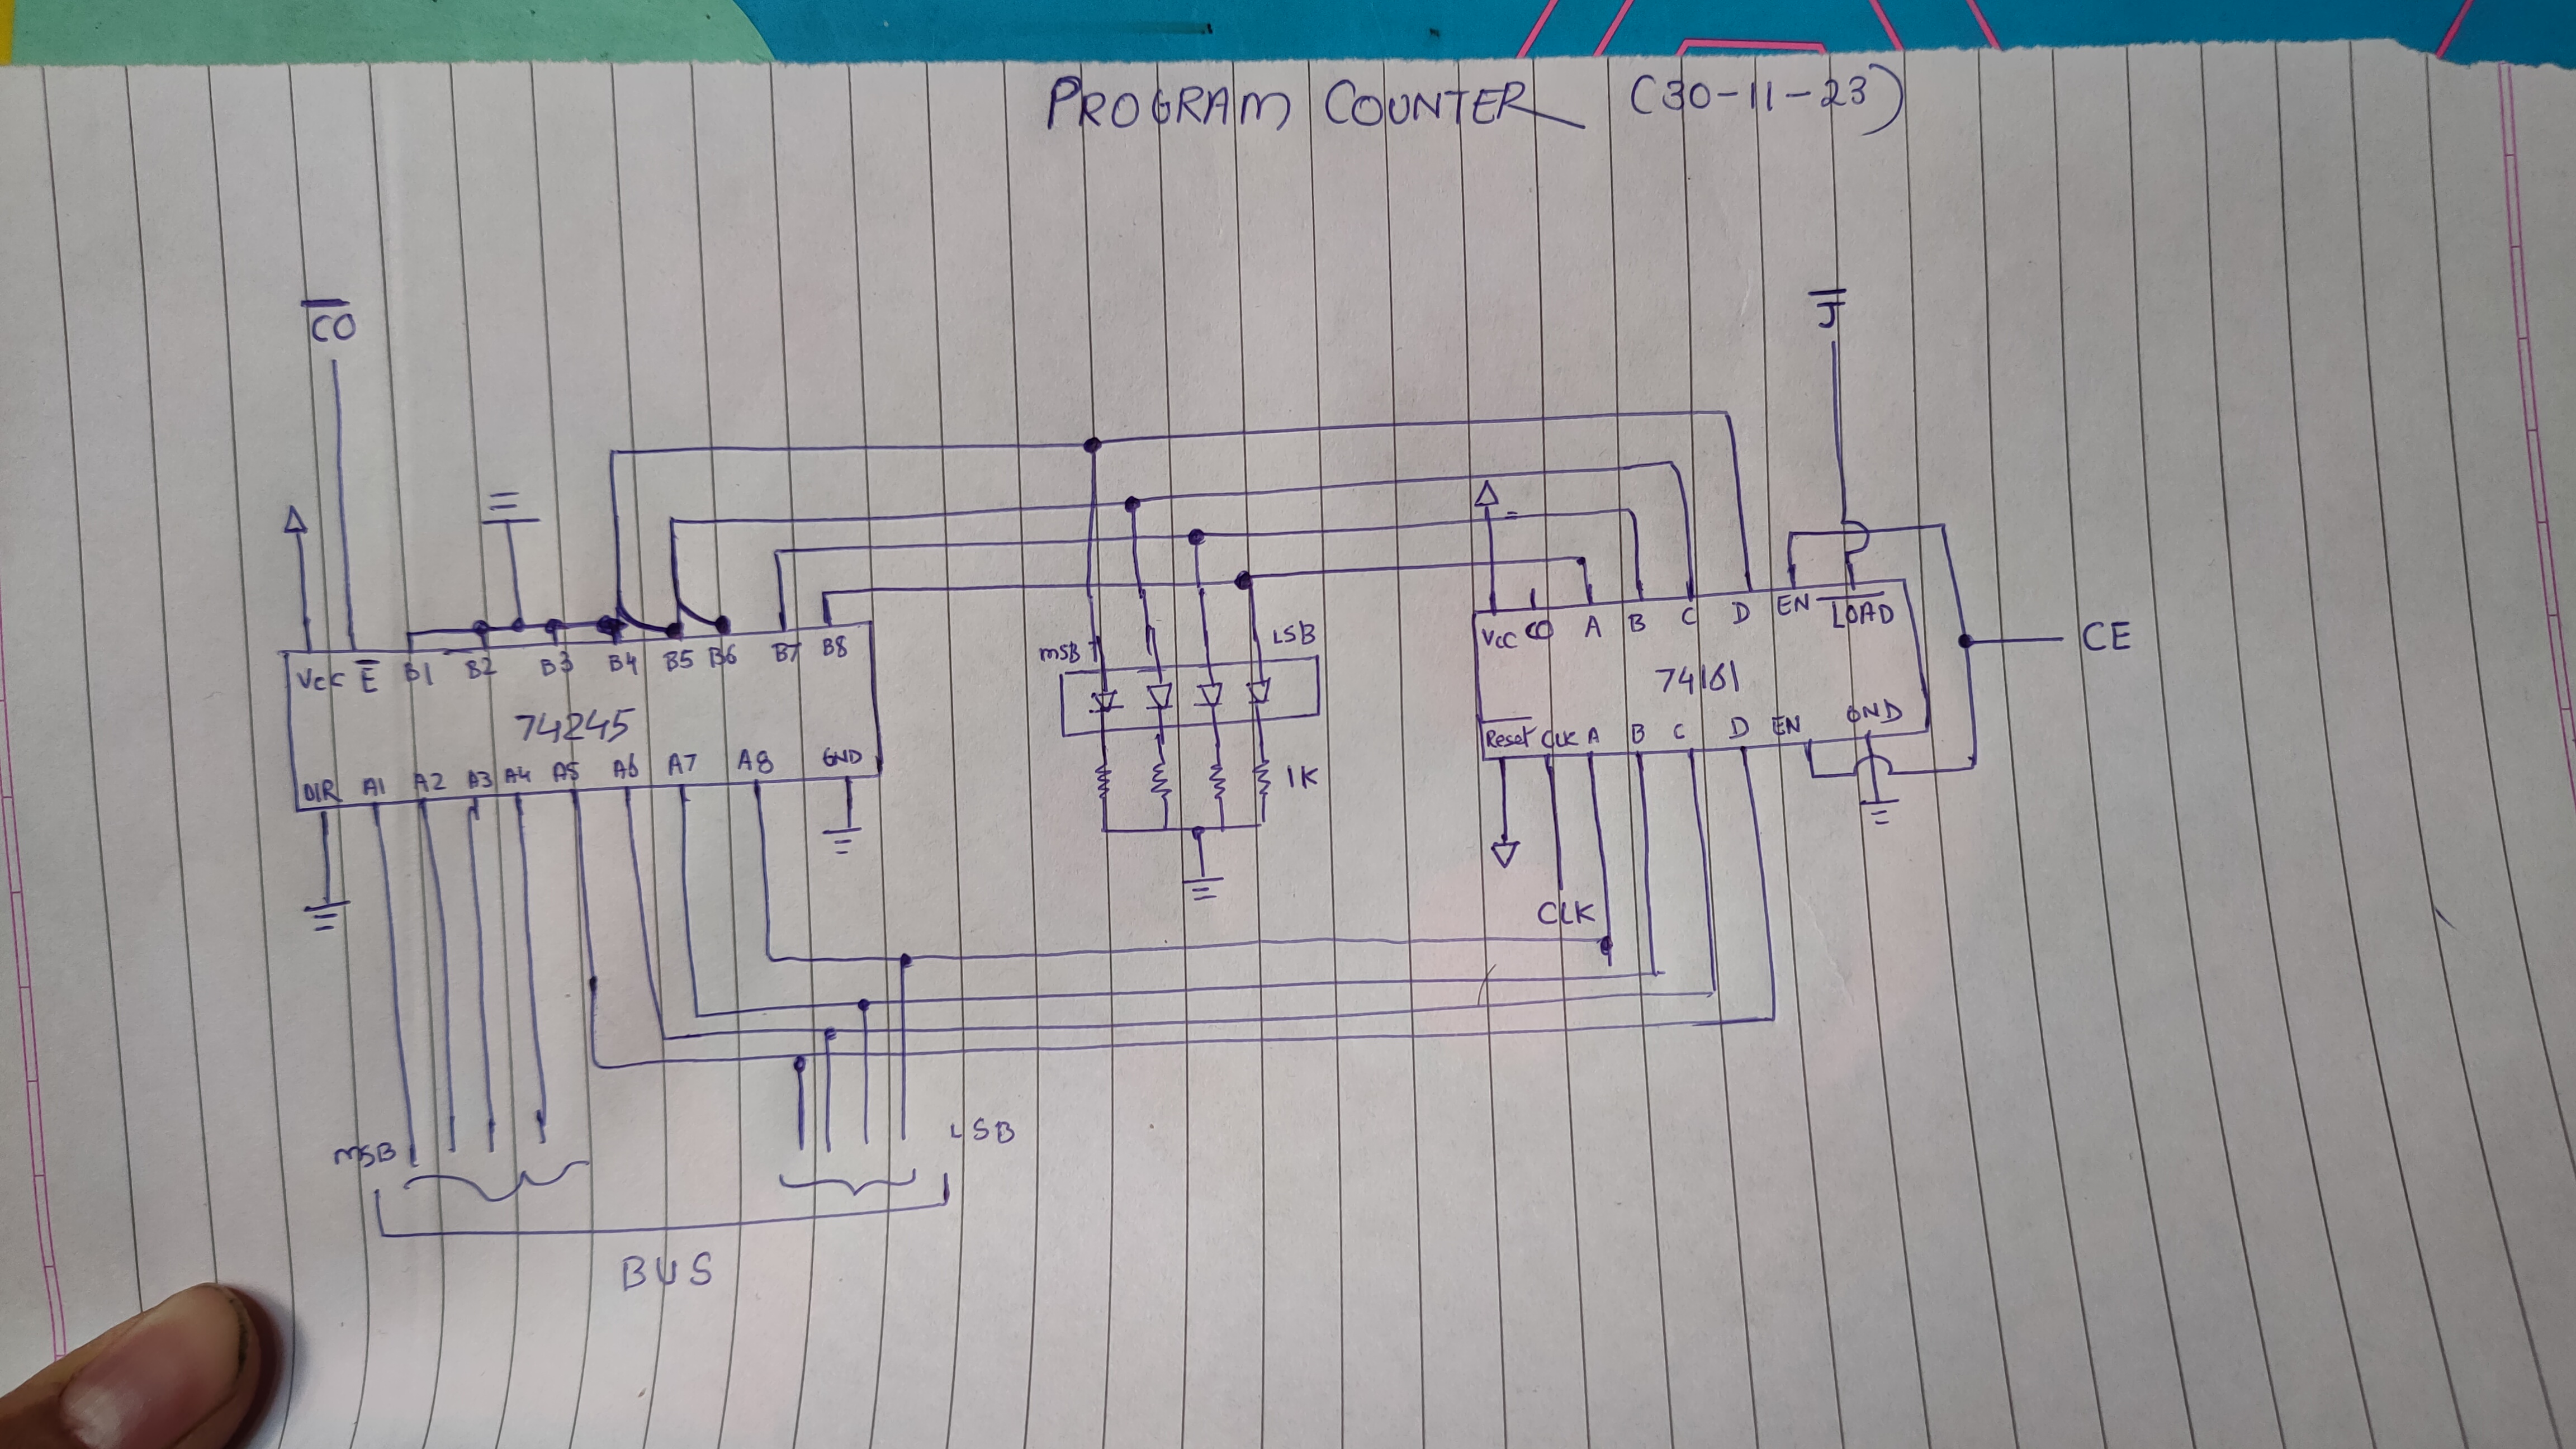 PROGRAM COUNTER (30-11-23)
CO
J
Vcc E B1 B2 B3 B4 B5 B6 B7 B8
74245
DIR A1 A2 A3 A4 A5 A6 A7 A8 GND
MSB LSB
1K
Vcc CO A B C D EN LOAD
74161
Reset CLK A B C D EN GND
CE
CLK
MSB LSB
BUS